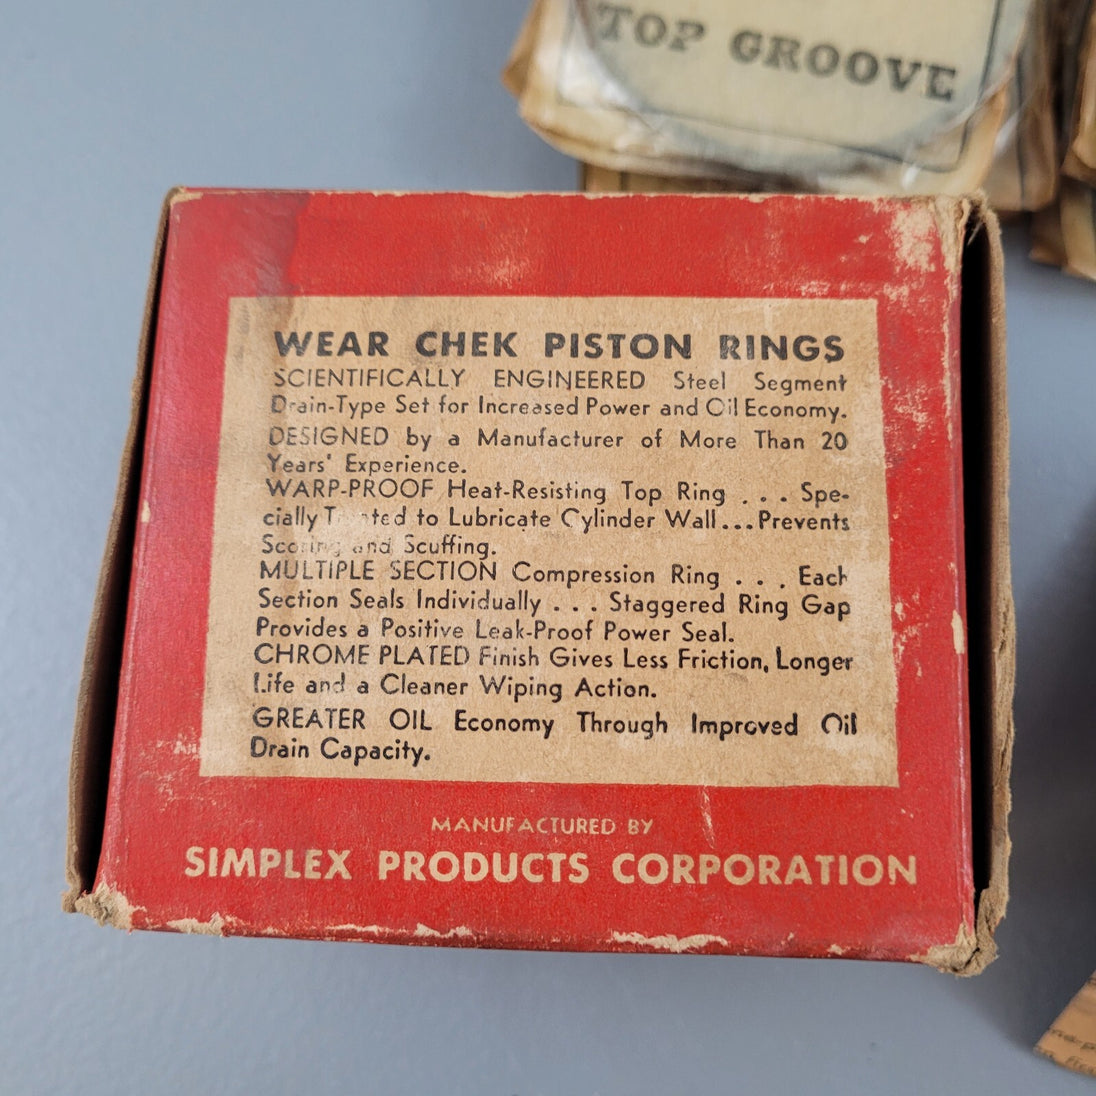 TOP GROOVE
WEAR CHEK PISTON RINGS
SCIENTIFICALLY ENGINEERED Steel Segment
Drain-Type Set for Increased Power and Oil Economy.
DESIGNED by a Manufacturer of More Than 20
Years' Experience.
WARP-PROOF Heat-Resisting Top Ring . . . Spe-
cially Treated to Lubricate Cylinder Wall...Prevents
Scoring and Scuffing.
MULTIPLE SECTION Compression Ring . . . Each
Section Seals Individually . . . Staggered Ring Gap
Provides a Positive Leak-Proof Power Seal.
CHROME PLATED Finish Gives Less Friction, Longer
Life and a Cleaner Wiping Action.
GREATER OIL Economy Through Improved Oil
Drain Capacity.
MANUFACTURED BY
SIMPLEX PRODUCTS CORPORATION